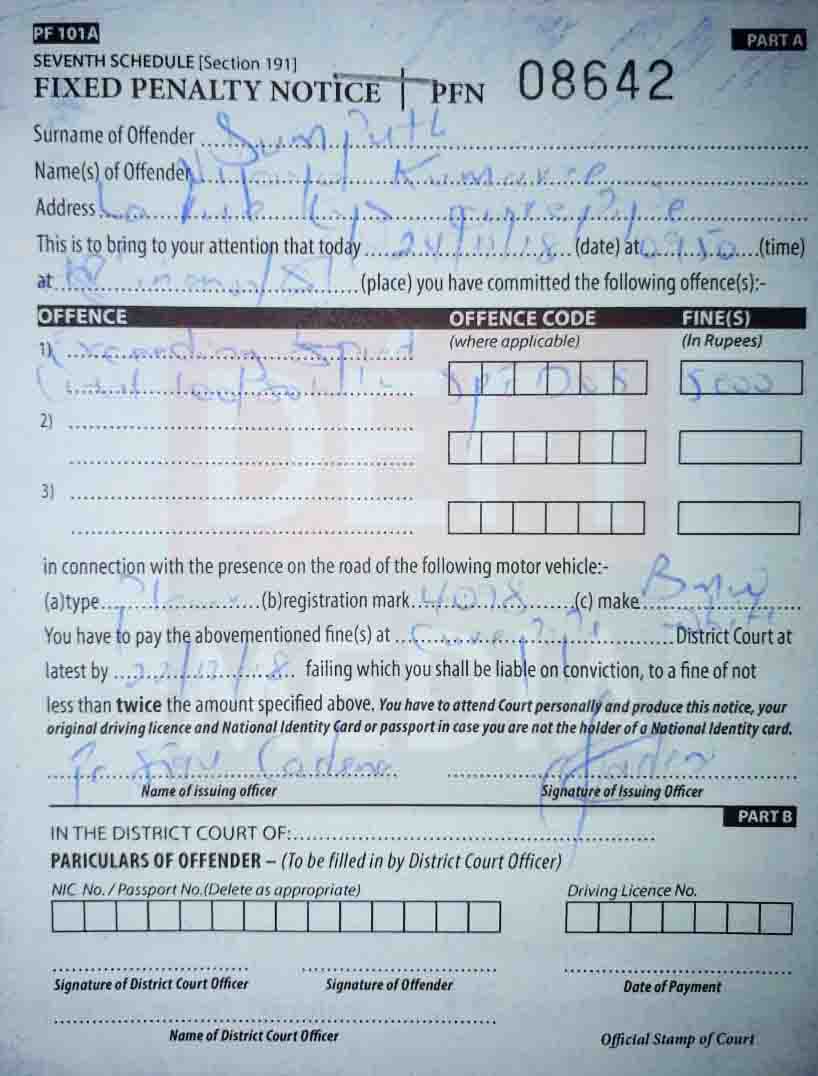 PF 101A
PART A
SEVENTH SCHEDULE [Section 191]
FIXED PENALTY NOTICE PFN 08642
Surname of Offender
Name(s) of Offender
Address
This is to bring to your attention that today 24/11/18 (date) at 0950 (time)
at (place) you have committed the following offence(s):-
OFFENCE OFFENCE CODE FINE(S)
(where applicable) (In Rupees)
1) Exceeding Speed
5000
2)
3)
in connection with the presence on the road of the following motor vehicle:-
(a)type (b)registration mark (c) make
You have to pay the abovementioned fine(s) at District Court at
latest by 22/12/18 failing which you shall be liable on conviction, to a fine of not
less than twice the amount specified above. You have to attend Court personally and produce this notice, your
original driving licence and National Identity Card or passport in case you are not the holder of a National Identity card.
Name of issuing officer Signature of Issuing Officer
PART B
IN THE DISTRICT COURT OF:
PARICULARS OF OFFENDER – (To be filled in by District Court Officer)
NIC No. / Passport No.(Delete as appropriate) Driving Licence No.
Signature of District Court Officer Signature of Offender Date of Payment
Name of District Court Officer Official Stamp of Court
DEFI
MEDIA